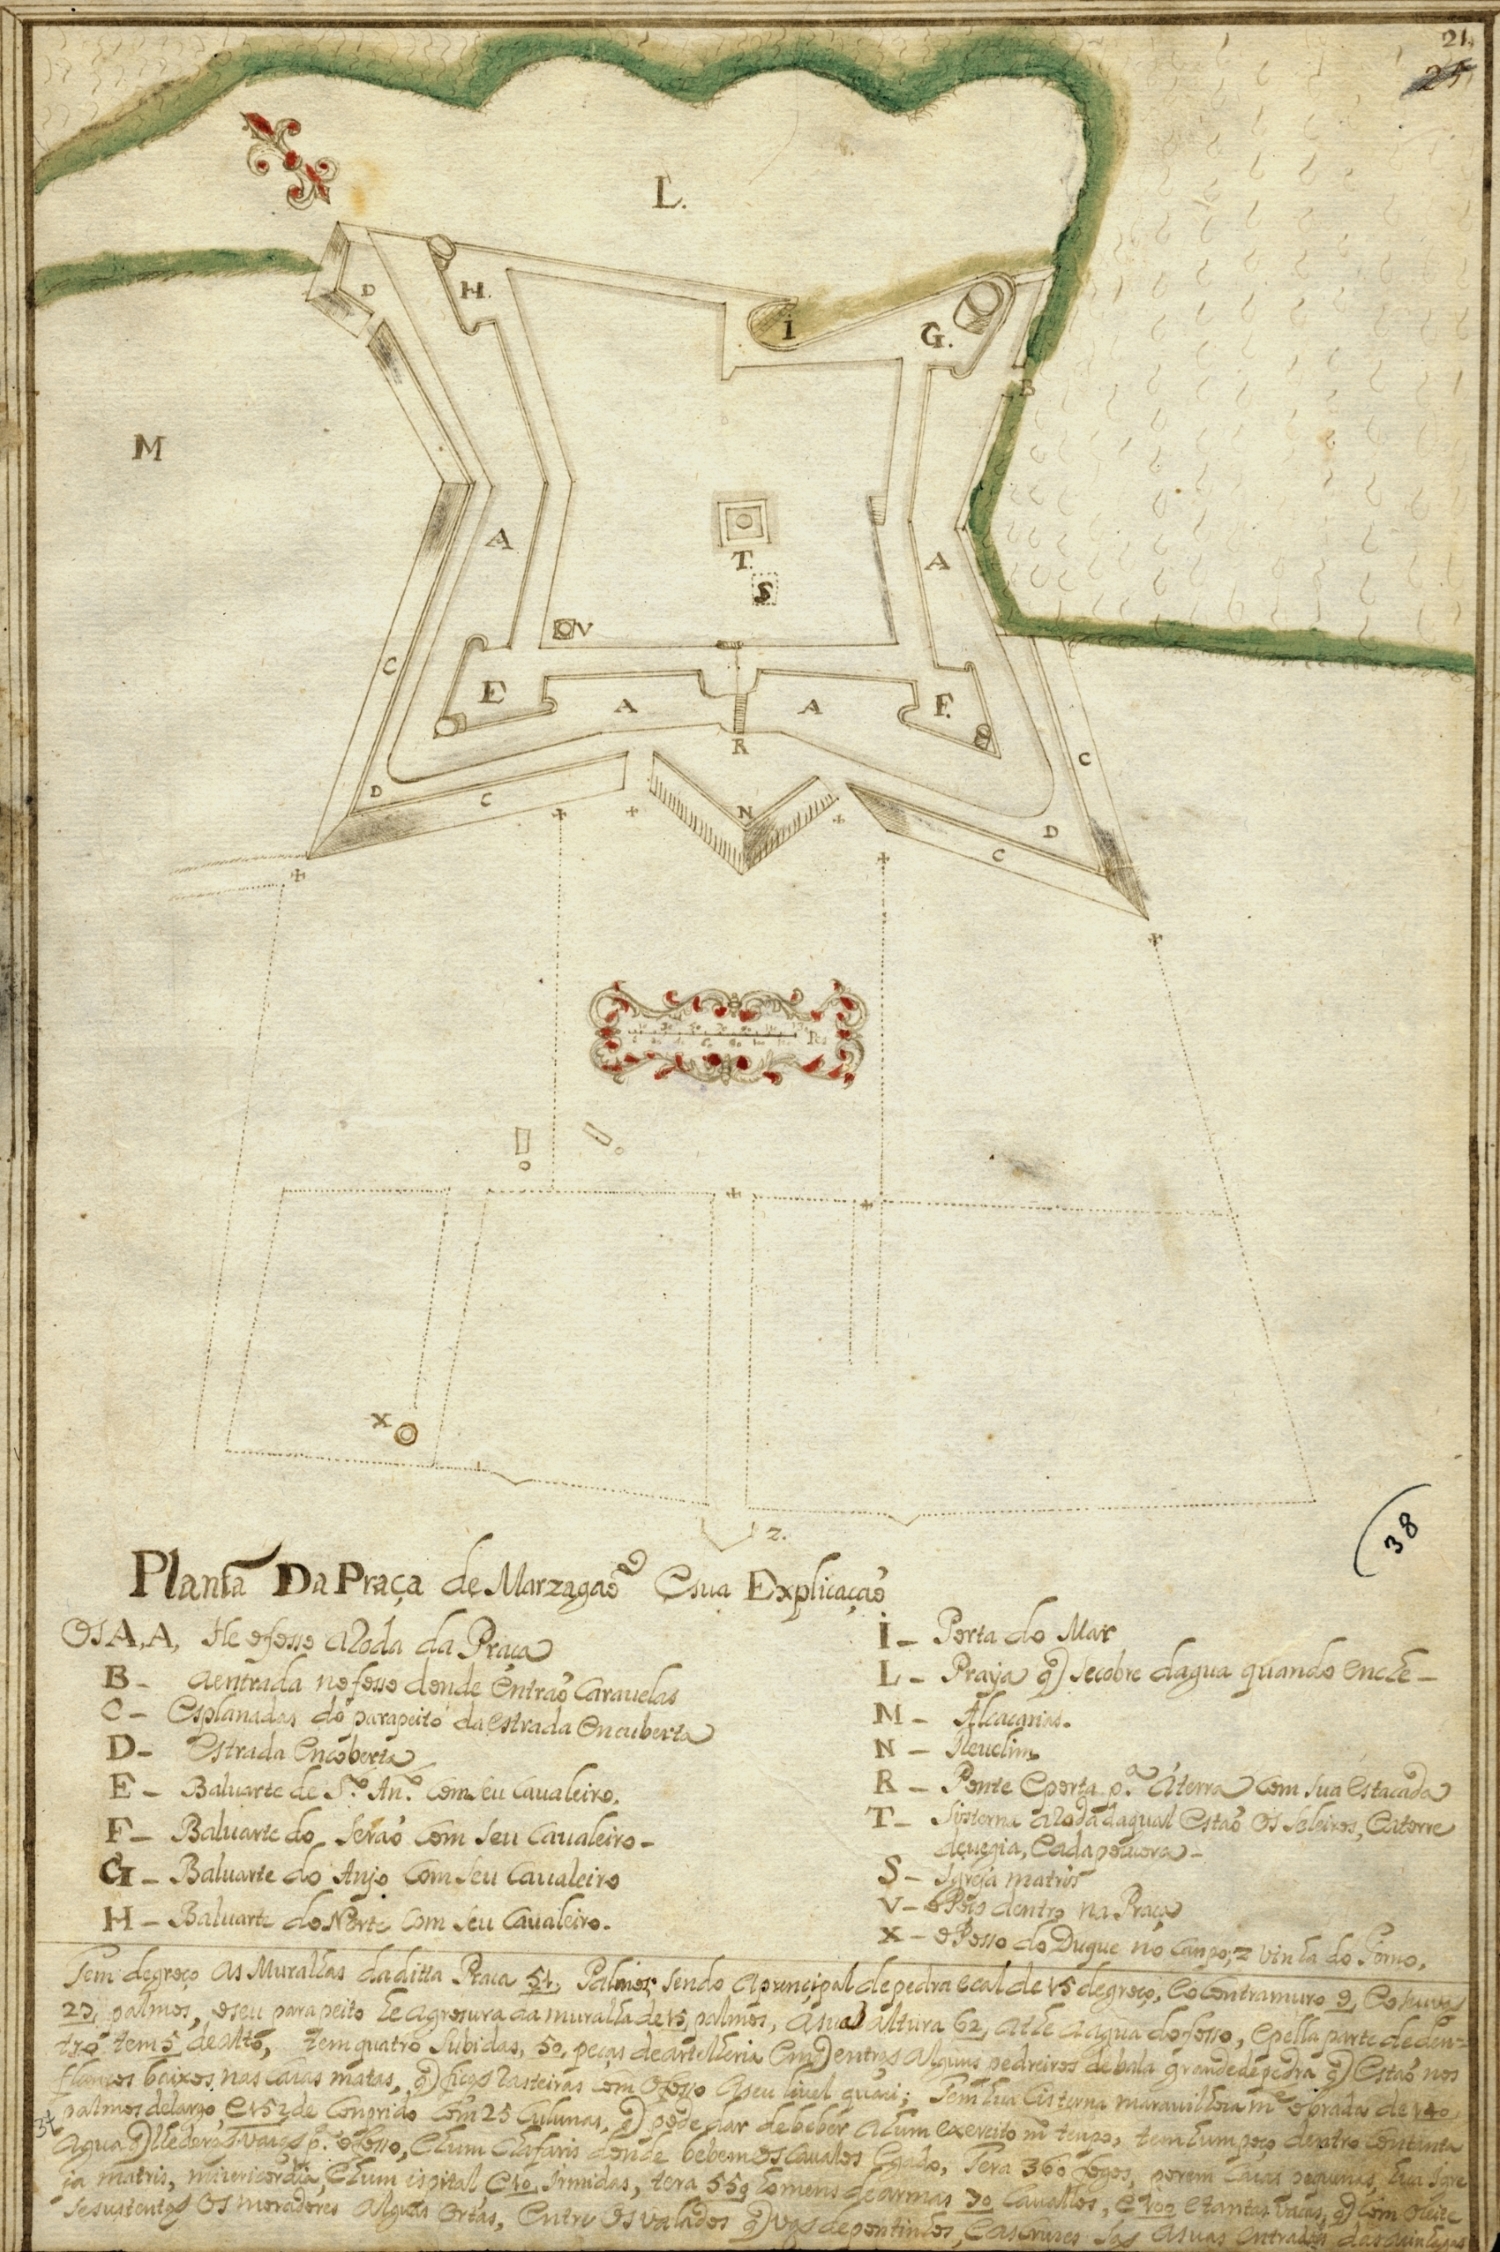 21
25
L.
D
H.
I
G.
B
M
A
A
T.
S
V
C
E
A
A
F.
R
C
D
C
N
D
C
X
z.
38
Planta Da Praça de Marzagaõ Esua Explicaçaõ
OsA,A, He ofosso aRoda da Praça
B - Aentrada nofosso donde Entraõ Caravelas
C - Esplanadas do parapeito da estrada Encuberta
D - Estrada Encoberta
E - Baluarte de S.to An.to com seu Cavaleiro.
F - Baluarte do Seraõ Com seu Cavaleiro -
G - Baluarte do Anjo Com seu Cavaleiro
H - Baluarte do Norte Com seu Cavaleiro.
I - Porta do Mar
L - Praya q) secobre dagua quando enche -
M - Alcaçarias.
N - Revelim
R - Ponte Eporta p.a áterra Com sua Estacada
T - Sisterna aRoda daqual Estaõ Os Seleiros, Eatorre
devegia, Eada polvora -
S - Igreja matris
V - oPoço dentro na Praça
X - oPosso do Duque no Canpo; z vinha do
Tem degroço As Murallas daditta Praça 51, Palmos, Sendo aprencipal depedra ecal de 15 degroço, Eocontramuro 9,
palmos, eseu parapeito he agrosura da muralla de 15 palmos, Asua altura 62, athe aagua dofosso, Epella parte deden-
tro tem 5 de Alto, tem quatro Subidas, 50, peças deartelheria Em q) entraõ Alguns pedreiros debala grande depedra q) Estaõ nos
flancos baixos, nas Casas matas, q) ficaõ Rasteiras com ofosso Aseu livel quazi; Tem hua Cisterna maravilhoza m.to obrada de 140
palmos delargo, E 152 de Conprido Com 25 Culunas, q) pode dar debeber ahum exercito m.to tenpo, tem hum poço dentro
Agua E hum Chafaris donde bebem os Cavalos Egado, Tera 360 fogos, porem Casas pequenas, hua Igre
ja matris, misericordia, Ehum ospital E 10, Irmidas, tera 559 homens dearmas 70 Cavallos, E 400 Etantas Vacas, q) Com oleite
sesustentaõ Os moradores Alguas Ortas, Entre Os valados q) vaõ depontinhos, EasCruzes Saõ Asuas Entradas